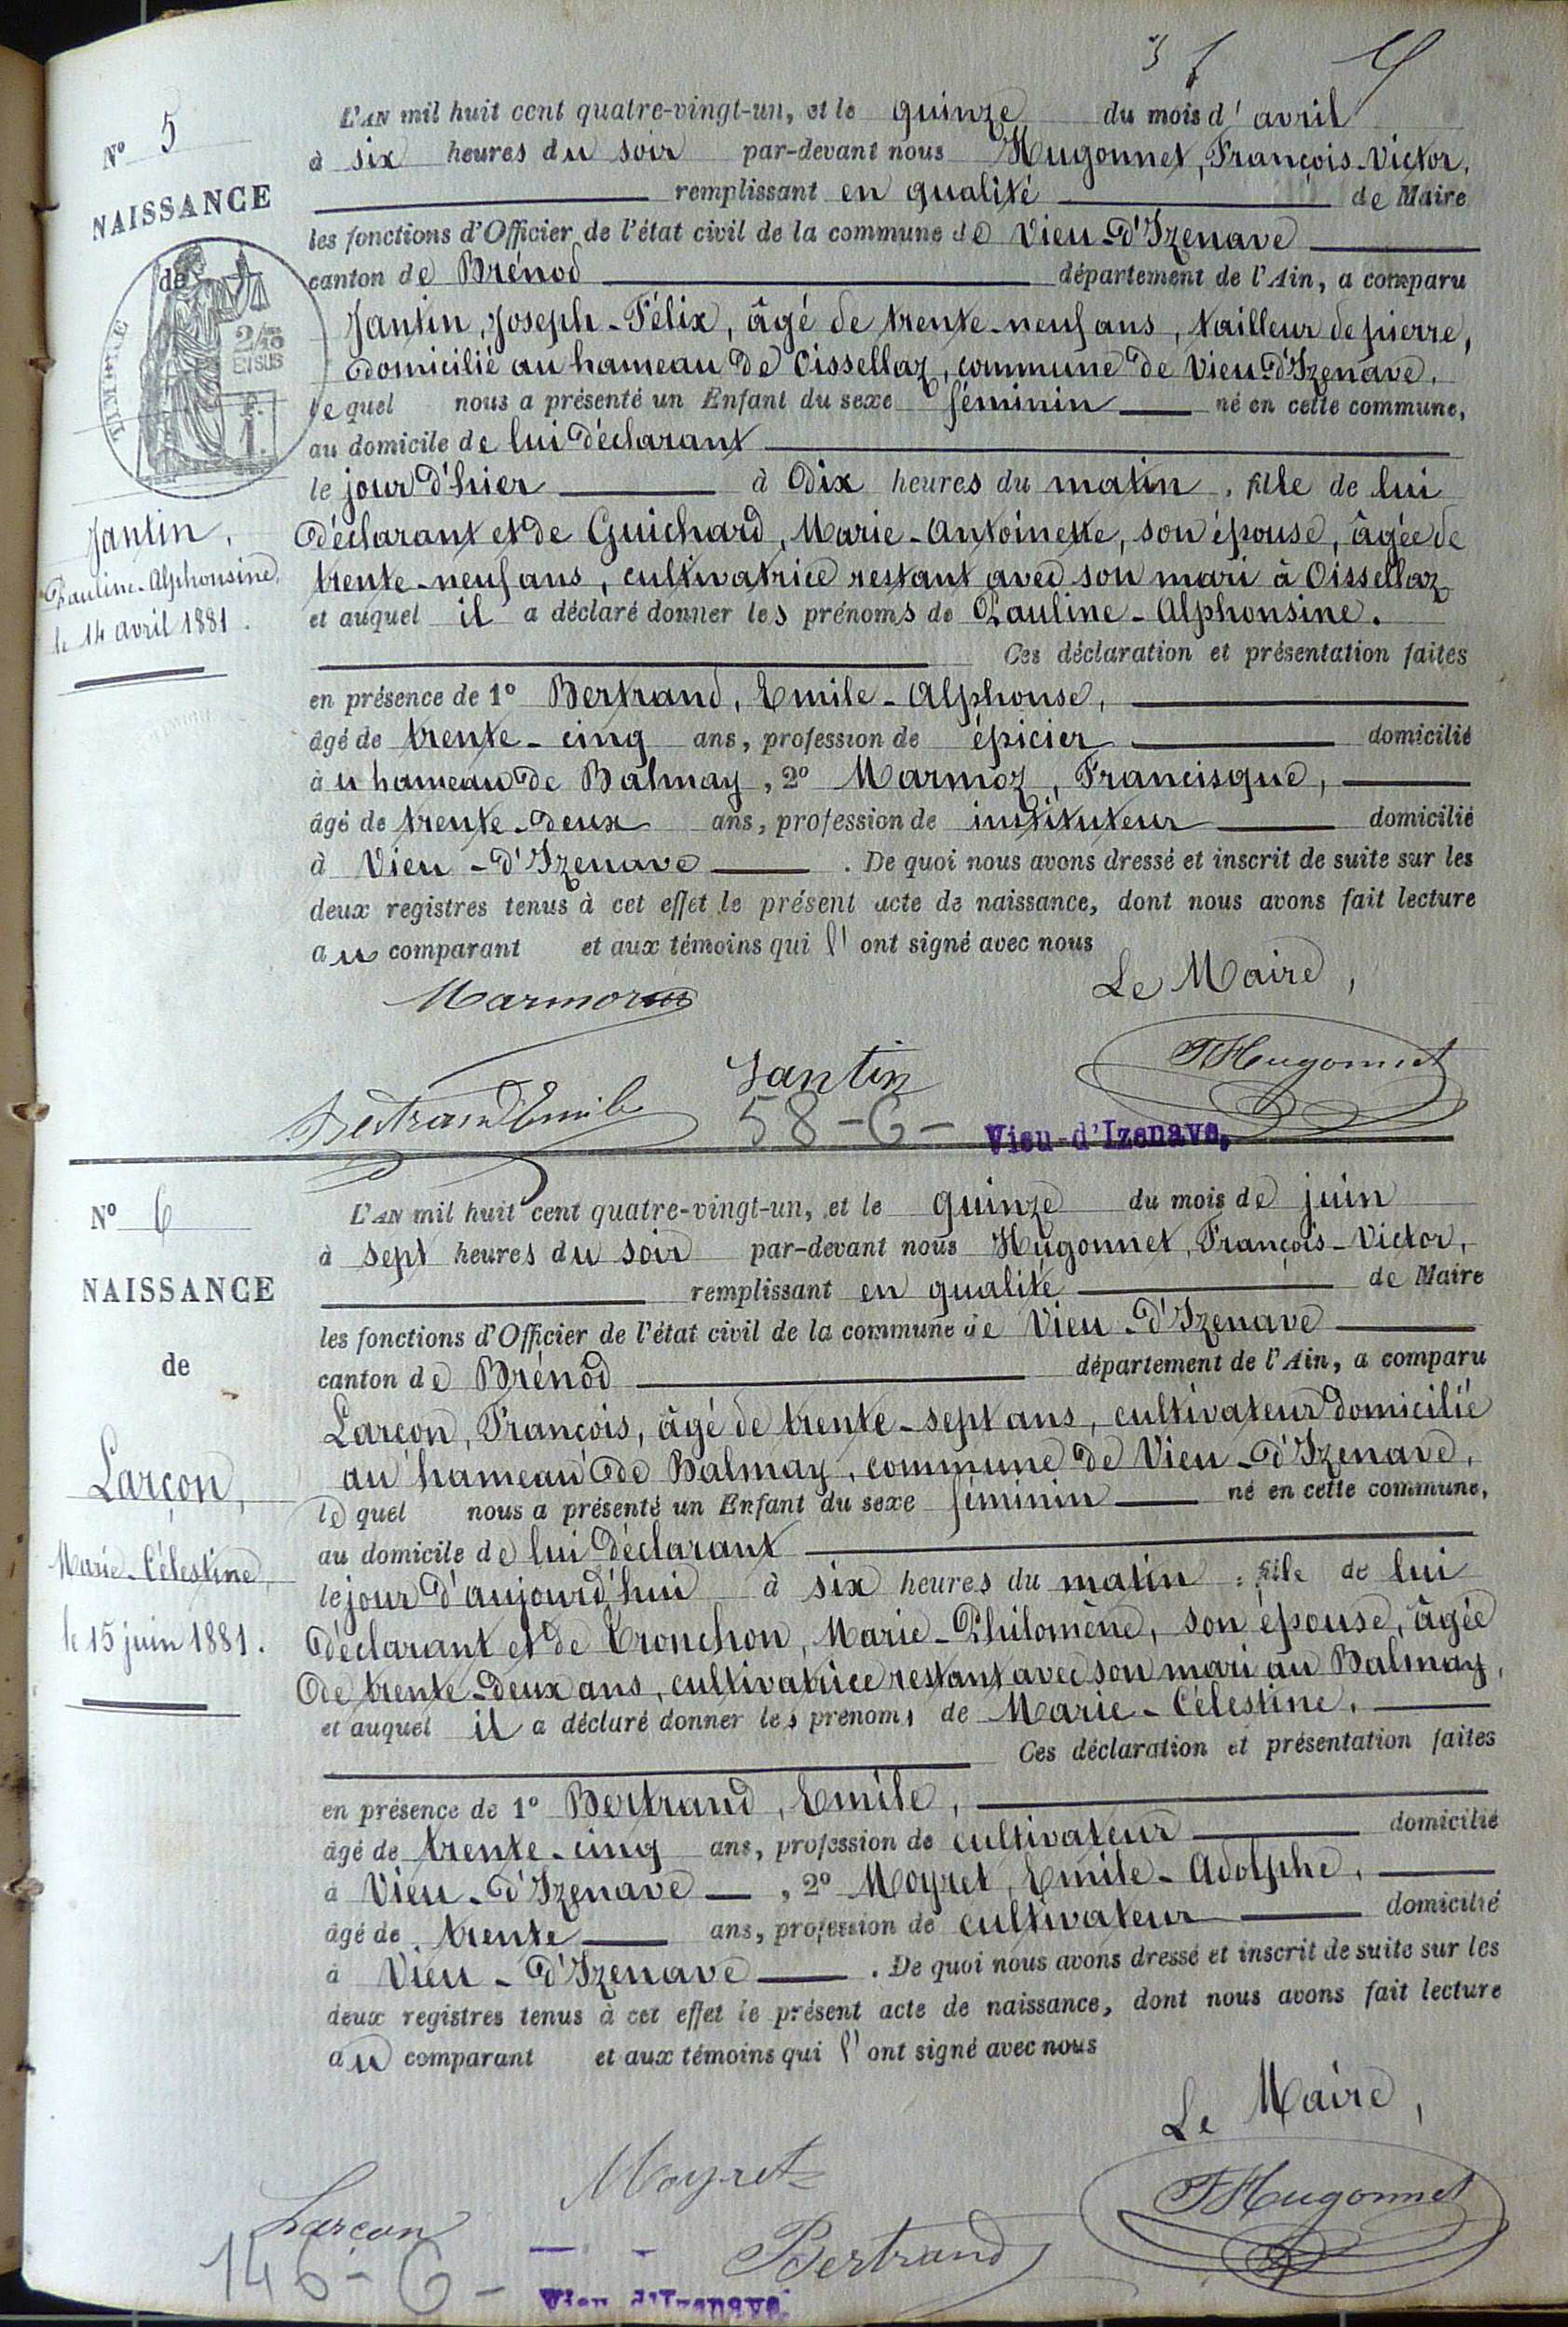 L'AN mil huit cent quatre-vingt-un, et le quinze du mois d'avril
N° 5
à six heures du soir par-devant nous Hugonnet, François-Victor,
NAISSANCE
remplissant en qualité de Maire
les fonctions d'Officier de l'état civil de la commune de Vieu-d'Izenave
de
canton de Brénod département de l'Ain, a comparu
Jantin, Joseph-Félix, âgé de trente-neuf ans, tailleur de pierre,
domicilié au hameau de Oissellaz, commune de Vieu-d'Izenave,
lequel nous a présenté un Enfant du sexe féminin né en cette commune,
au domicile de lui déclarant
le jour d'hier à dix heures du matin, fille de lui
déclarant et de Guichard, Marie-Antoinette, son épouse, âgée de
trente-neuf ans, cultivatrice restant avec son mari à Oissellaz
et auquel il a déclaré donner les prénoms de Pauline-Alphonsine.
Jantin,
Pauline-Alphonsine,
le 14 avril 1881.
Ces déclaration et présentation faites
en présence de 1° Bertrand, Emile-Alphonse,
âgé de trente-cinq ans, profession de épicier domicilié
au hameau de Balmay, 2° Marmoz, Francisque,
âgé de trente-deux ans, profession de instituteur domicilié
à Vieu-d'Izenave. De quoi nous avons dressé et inscrit de suite sur les
deux registres tenus à cet effet le présent acte de naissance, dont nous avons fait lecture
au comparant et aux témoins qui l'ont signé avec nous
Le Maire,
Marmoz
Jantin
FHugonnet
Bertrand Emile
58-6-
Vieu-d'Izenave,
N° 6
L'AN mil huit cent quatre-vingt-un, et le quinze du mois de juin
à sept heures du soir par-devant nous Hugonnet, François-Victor,
NAISSANCE
remplissant en qualité de Maire
les fonctions d'Officier de l'état civil de la commune de Vieu-d'Izenave
de
canton de Brénod département de l'Ain, a comparu
Larçon, François, âgé de trente-sept ans, cultivateur domicilié
au hameau de Balmay, commune de Vieu-d'Izenave,
lequel nous a présenté un Enfant du sexe féminin né en cette commune,
au domicile de lui déclarant
le jour d'aujourd'hui à six heures du matin, fille de lui
déclarant et de Tronchon, Marie-Philomène, son épouse, âgée
de trente-deux ans, cultivatrice restant avec son mari au Balmay,
et auquel il a déclaré donner les prénoms de Marie-Célestine.
Larçon,
Marie-Célestine,
le 15 juin 1881.
Ces déclaration et présentation faites
en présence de 1° Bertrand, Emile,
âgé de trente-cinq ans, profession de cultivateur domicilié
à Vieu-d'Izenave, 2° Moyret, Emile-Adolphe,
âgé de trente ans, profession de cultivateur domicilié
à Vieu-d'Izenave. De quoi nous avons dressé et inscrit de suite sur les
deux registres tenus à cet effet le présent acte de naissance, dont nous avons fait lecture
au comparant et aux témoins qui l'ont signé avec nous
Le Maire,
Moyret
FHugonnet
Larçon
Bertrand
146-6-
Vieu-d'Izenave.